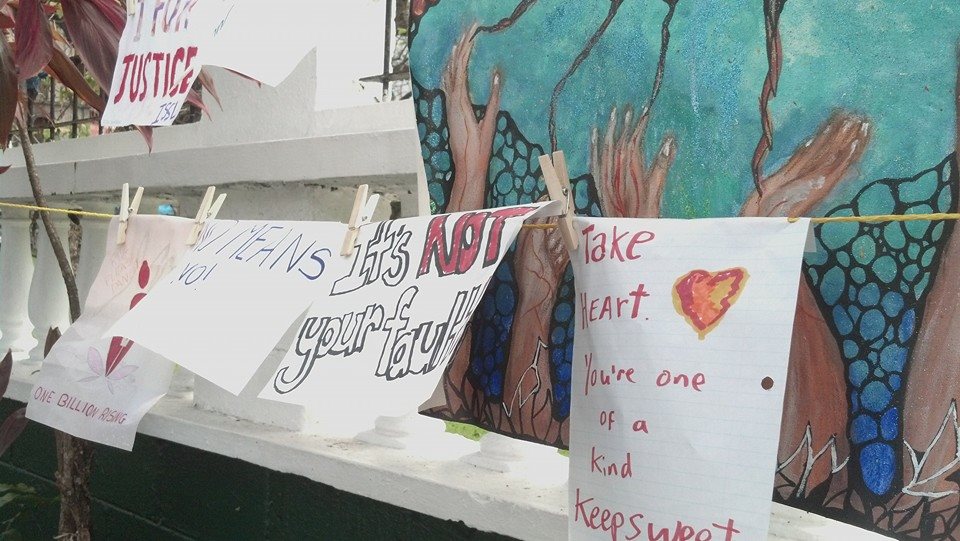 FOR
JUSTICE
ONE BILLION RISING
NO MEANS
NO!
It's NOT
your fault
Take
HEART.
You're one
of a
kind
Keep sweet